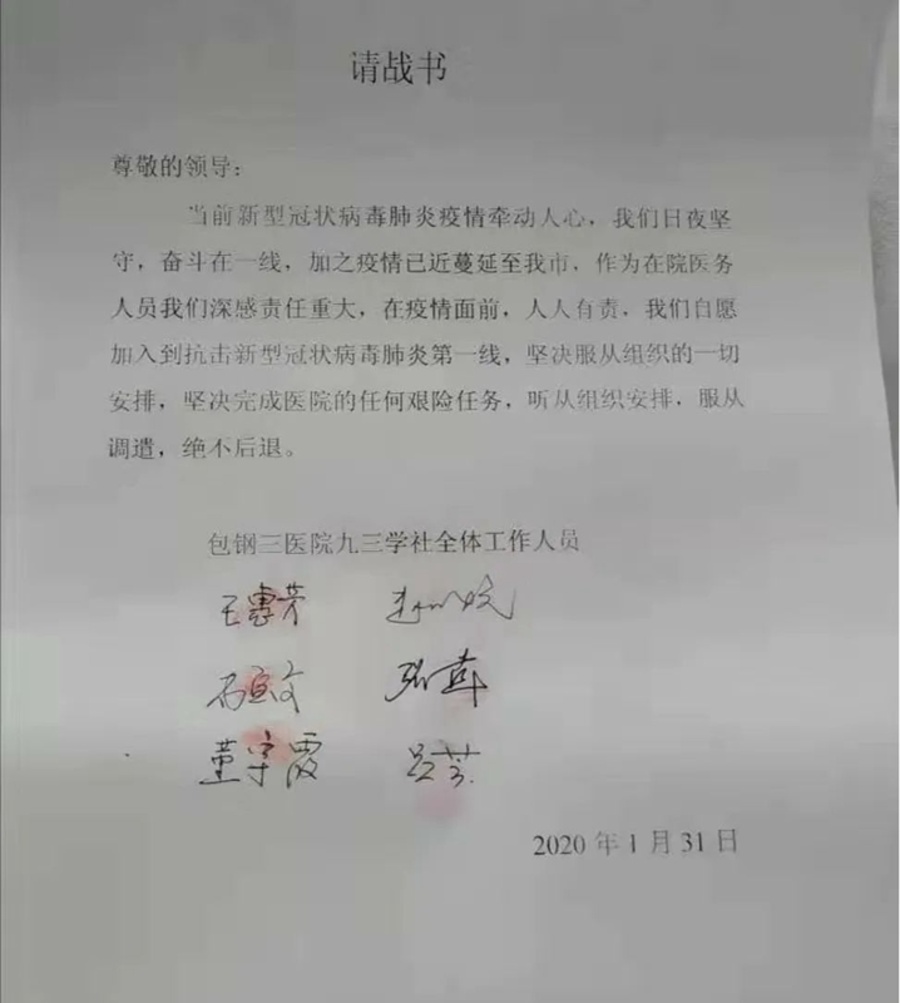 请战书
尊敬的领导：
当前新型冠状病毒肺炎疫情牵动人心，我们日夜坚
守，奋斗在一线，加之疫情已近蔓延至我市，作为在院医务
人员我们深感责任重大，在疫情面前，人人有责，我们自愿
加入到抗击新型冠状病毒肺炎第一线，坚决服从组织的一切
安排，坚决完成医院的任何艰险任务，听从组织安排，服从
调遣，绝不后退。
包钢三医院九三学社全体工作人员
王惠芳
石宜文
董宇霞 吕芳
2020 年 1 月 31 日